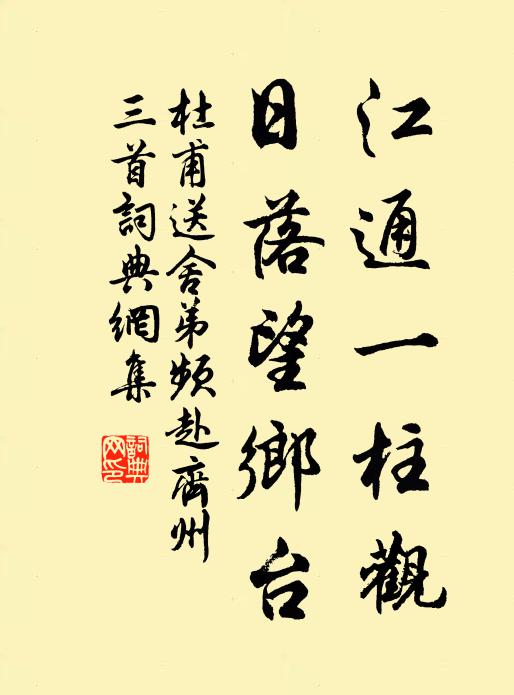 江通一柱觀
日落望鄉台
杜甫送舍弟頻赴齊州
三首詞典網集
詞典網印